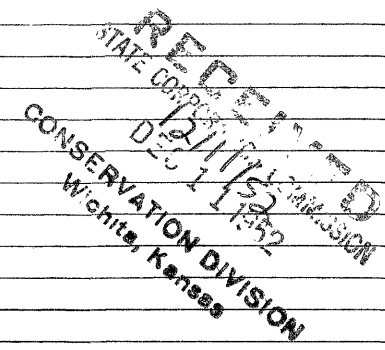 RECEIVED
STATE CORPORATION COMMISSION
12/11/52
DEC 11 1952
CONSERVATION DIVISION
Wichita, Kansas